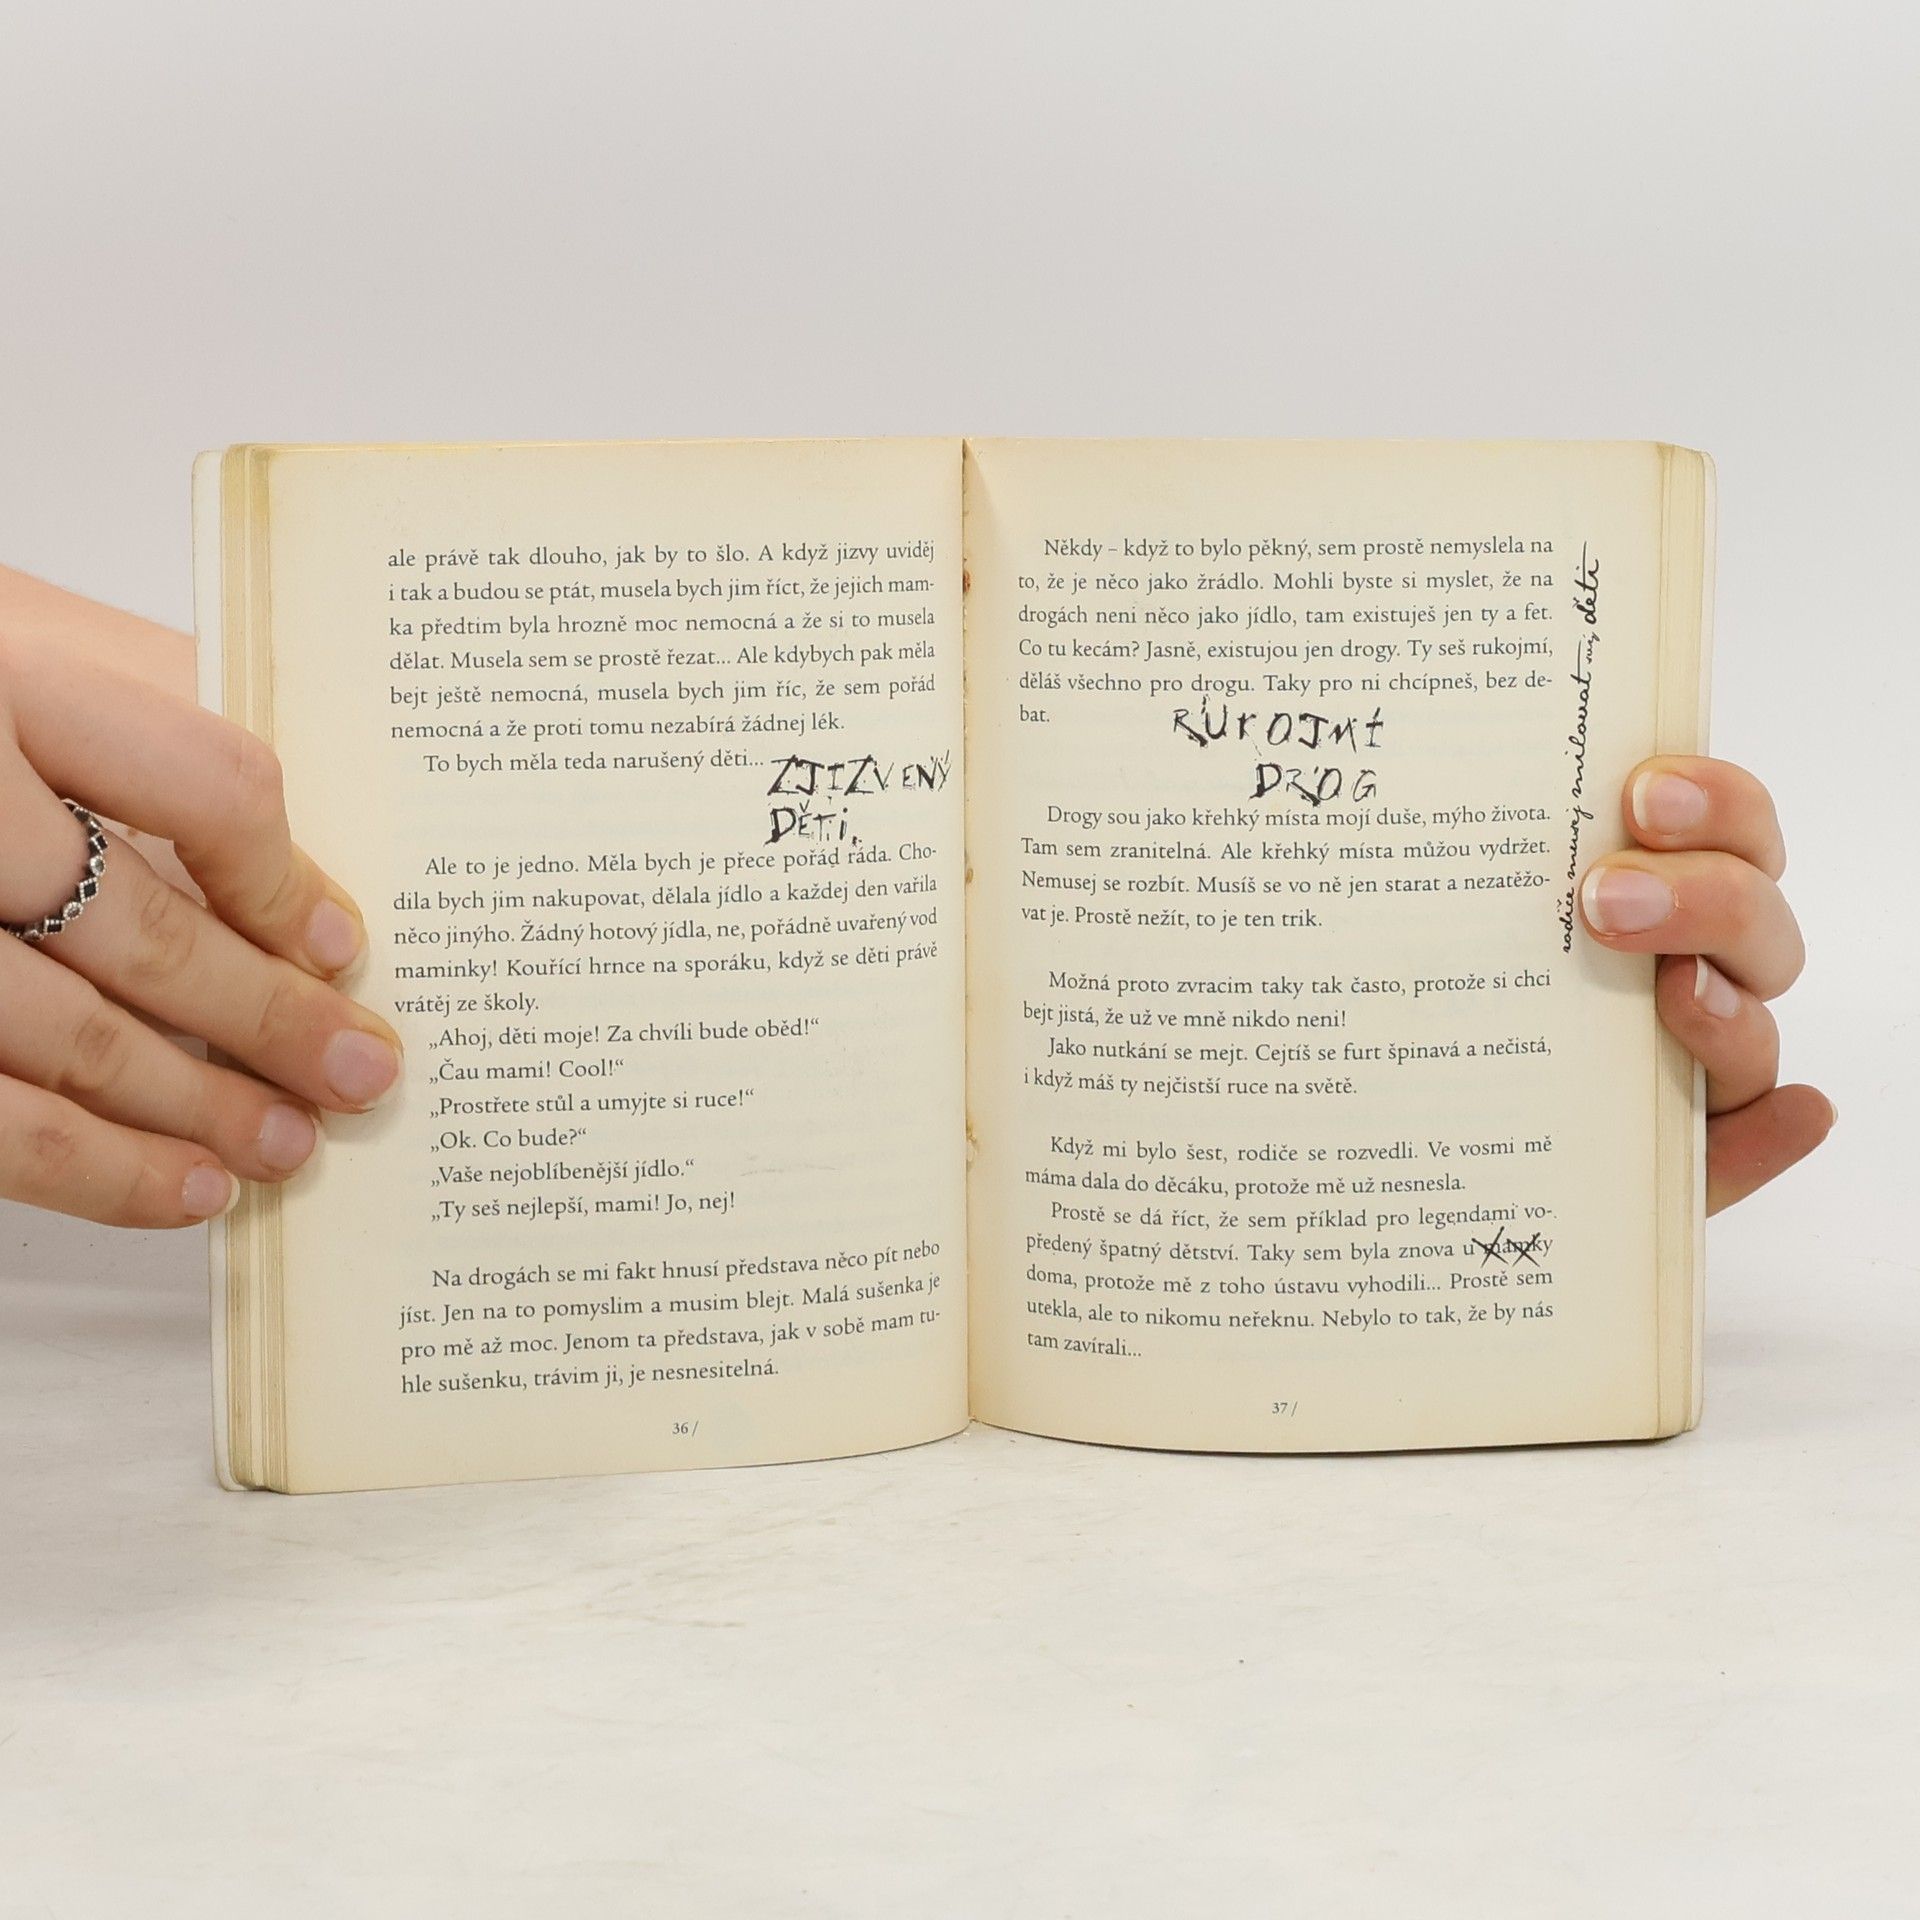 ale právě tak dlouho, jak by to šlo. A když jizvy uviděj
i tak a budou se ptát, musela bych jim říct, že jejich mam-
ka předtim byla hrozně moc nemocná a že si to musela
dělat. Musela sem se prostě řezat... Ale kdybych pak měla
bejt ještě nemocná, musela bych jim říc, že sem pořád
nemocná a že proti tomu nezabírá žádnej lék.
To bych měla teda narušený děti...
ZJIZVENÝ
DĚTI.
Ale to je jedno. Měla bych je přece pořád ráda. Cho-
dila bych jim nakupovat, dělala jídlo a každej den vařila
něco jinýho. Žádný hotový jídla, ne, pořádně uvařený vod
maminky! Kouřící hrnce na sporáku, když se děti právě
vrátěj ze školy.
„Ahoj, děti moje! Za chvíli bude oběd!“
„Čau mami! Cool!“
„Prostřete stůl a umyjte si ruce!“
„Ok. Co bude?“
„Vaše nejoblíbenější jídlo.“
„Ty seš nejlepší, mami! Jo, nej!
Na drogách se mi fakt hnusí představa něco pít nebo
jíst. Jen na to pomyslim a musim blejt. Malá sušenka je
pro mě až moc. Jenom ta představa, jak v sobě mam tu-
hle sušenku, trávim ji, je nesnesitelná.
36 /
Někdy – když to bylo pěkný, sem prostě nemyslela na
to, že je něco jako žrádlo. Mohli byste si myslet, že na
drogách neni něco jako jídlo, tam existuješ jen ty a fet.
Co tu kecám? Jasně, existujou jen drogy. Ty seš rukojmí,
děláš všechno pro drogu. Taky pro ni chcípneš, bez de-
bat.
RUKOJMÍ
DROG
Drogy sou jako křehký místa mojí duše, mýho života.
Tam sem zranitelná. Ale křehký místa můžou vydržet.
Nemusej se rozbít. Musíš se vo ně jen starat a nezatěžo-
vat je. Prostě nežít, to je ten trik.
Možná proto zvracim taky tak často, protože si chci
bejt jistá, že už ve mně nikdo neni!
Jako nutkání se mejt. Cejtíš se furt špinavá a nečistá,
i když máš ty nejčistší ruce na světě.
Když mi bylo šest, rodiče se rozvedli. Ve vosmi mě
máma dala do děcáku, protože mě už nesnesla.
Prostě se dá říct, že sem příklad pro legendami vo-
předený špatný dětství. Taky sem byla znova u mamky
doma, protože mě z toho ústavu vyhodili... Prostě sem
utekla, ale to nikomu neřeknu. Nebylo to tak, že by nás
tam zavírali...
37 /
rodiče musej milovat svý děti